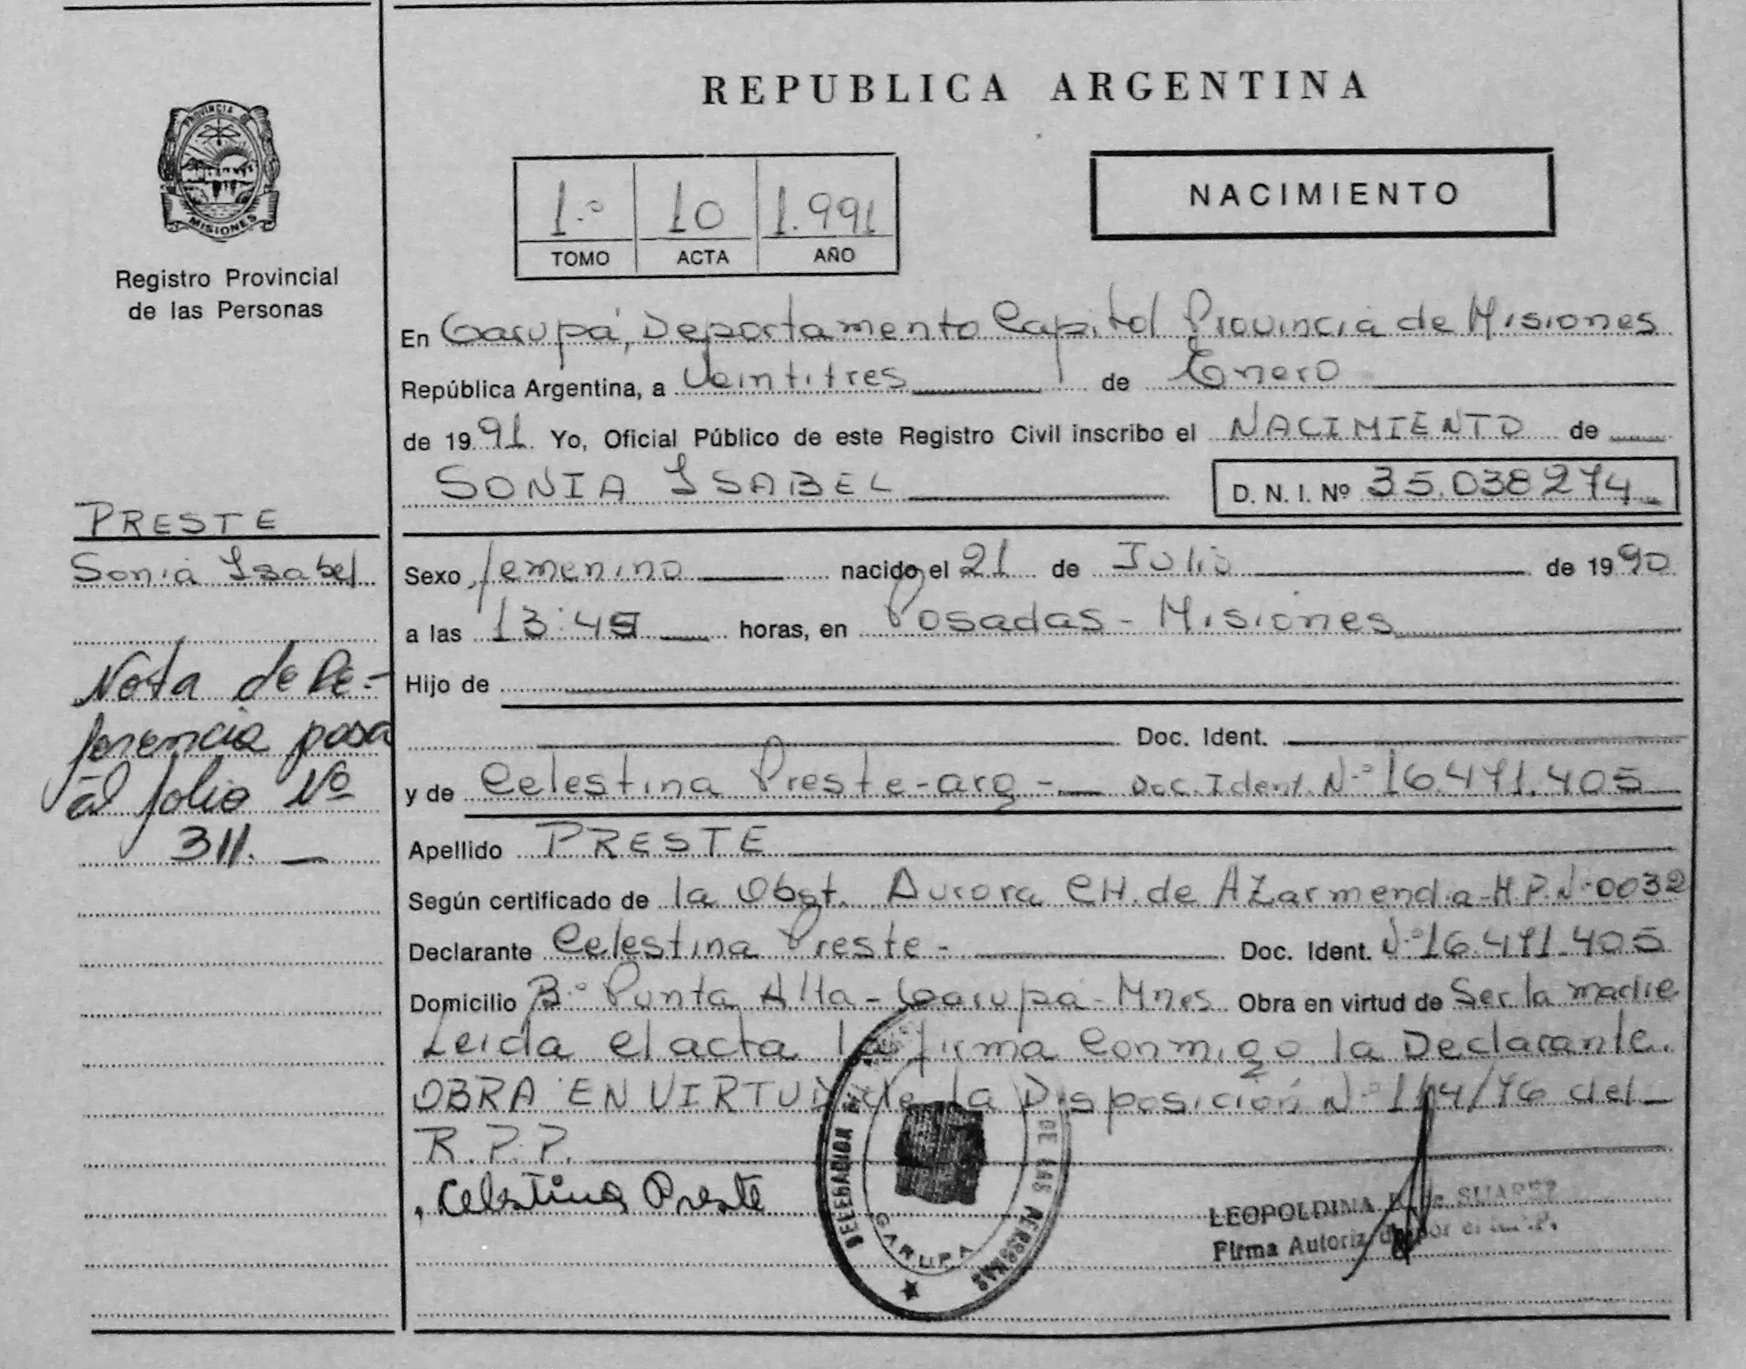 REPUBLICA ARGENTINA
PROVINCIA DE
MISIONES
Registro Provincial
de las Personas
1.º 10 1.991
TOMO ACTA AÑO
NACIMIENTO
En Garupá, Departamento Capital Provincia de Misiones
República Argentina, a Veintitres de Enero
de 1991. Yo, Oficial Público de este Registro Civil inscribo el NACIMIENTO de
SONIA ISABEL D. N. I. Nº 35.038274
PRESTE
Sonia Isabel
Sexo femenino nacido el 21 de Julio de 1990
a las 13:45 horas, en Posadas - Misiones
Nota de Re-
ferencia pasa
al folio Nº
311.
Hijo de
Doc. Ident.
y de Celestina Preste-arg - Doc. Ident. N.º 16.471.405
Apellido PRESTE
Según certificado de la Obst. Aurora CH. de AZarmendia-M.P.Nº0032
Declarante Celestina Preste - Doc. Ident. N.º 16.471.405
Domicilio Bº Punta Alta - Garupa - Mnes Obra en virtud de Ser la madre
Leida el acta la firma Conmigo la Declarante.
OBRA EN VIRTUD de la Disposición N.º 114/76 del
R.P.P.
Celestina Preste
DELEGACION
DE LAS PERSONAS
GARUPA
LEOPOLDINA de SUAREZ
Firma Autorizada por el R.P.P.